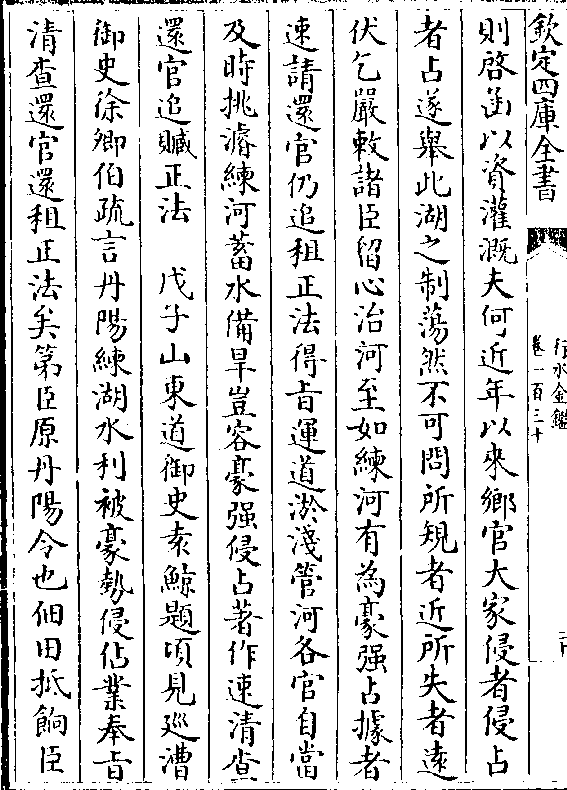 欽定四庫全書
行水金鑑
卷一百三十
則啓函以資灌溉夫何近年以來鄉官大家侵者侵占
者占遂舉此湖之制蕩然不可問所規者近所失者遠
伏乞嚴敕諸臣留心治河至如練河有為豪强占據者
速請還官仍追租正法得㫖運道淤淺管河各官自當
及時挑濬練河蓄水備旱豈容豪强侵占著作速清查
還官追贓正法　戊子山東道御史袁鯨題頃見廵漕
御史徐卿伯疏言丹陽練湖水利被豪勢侵佔業奉㫖
清查還官還租正法矣第臣原丹陽令也佃田抵餉臣